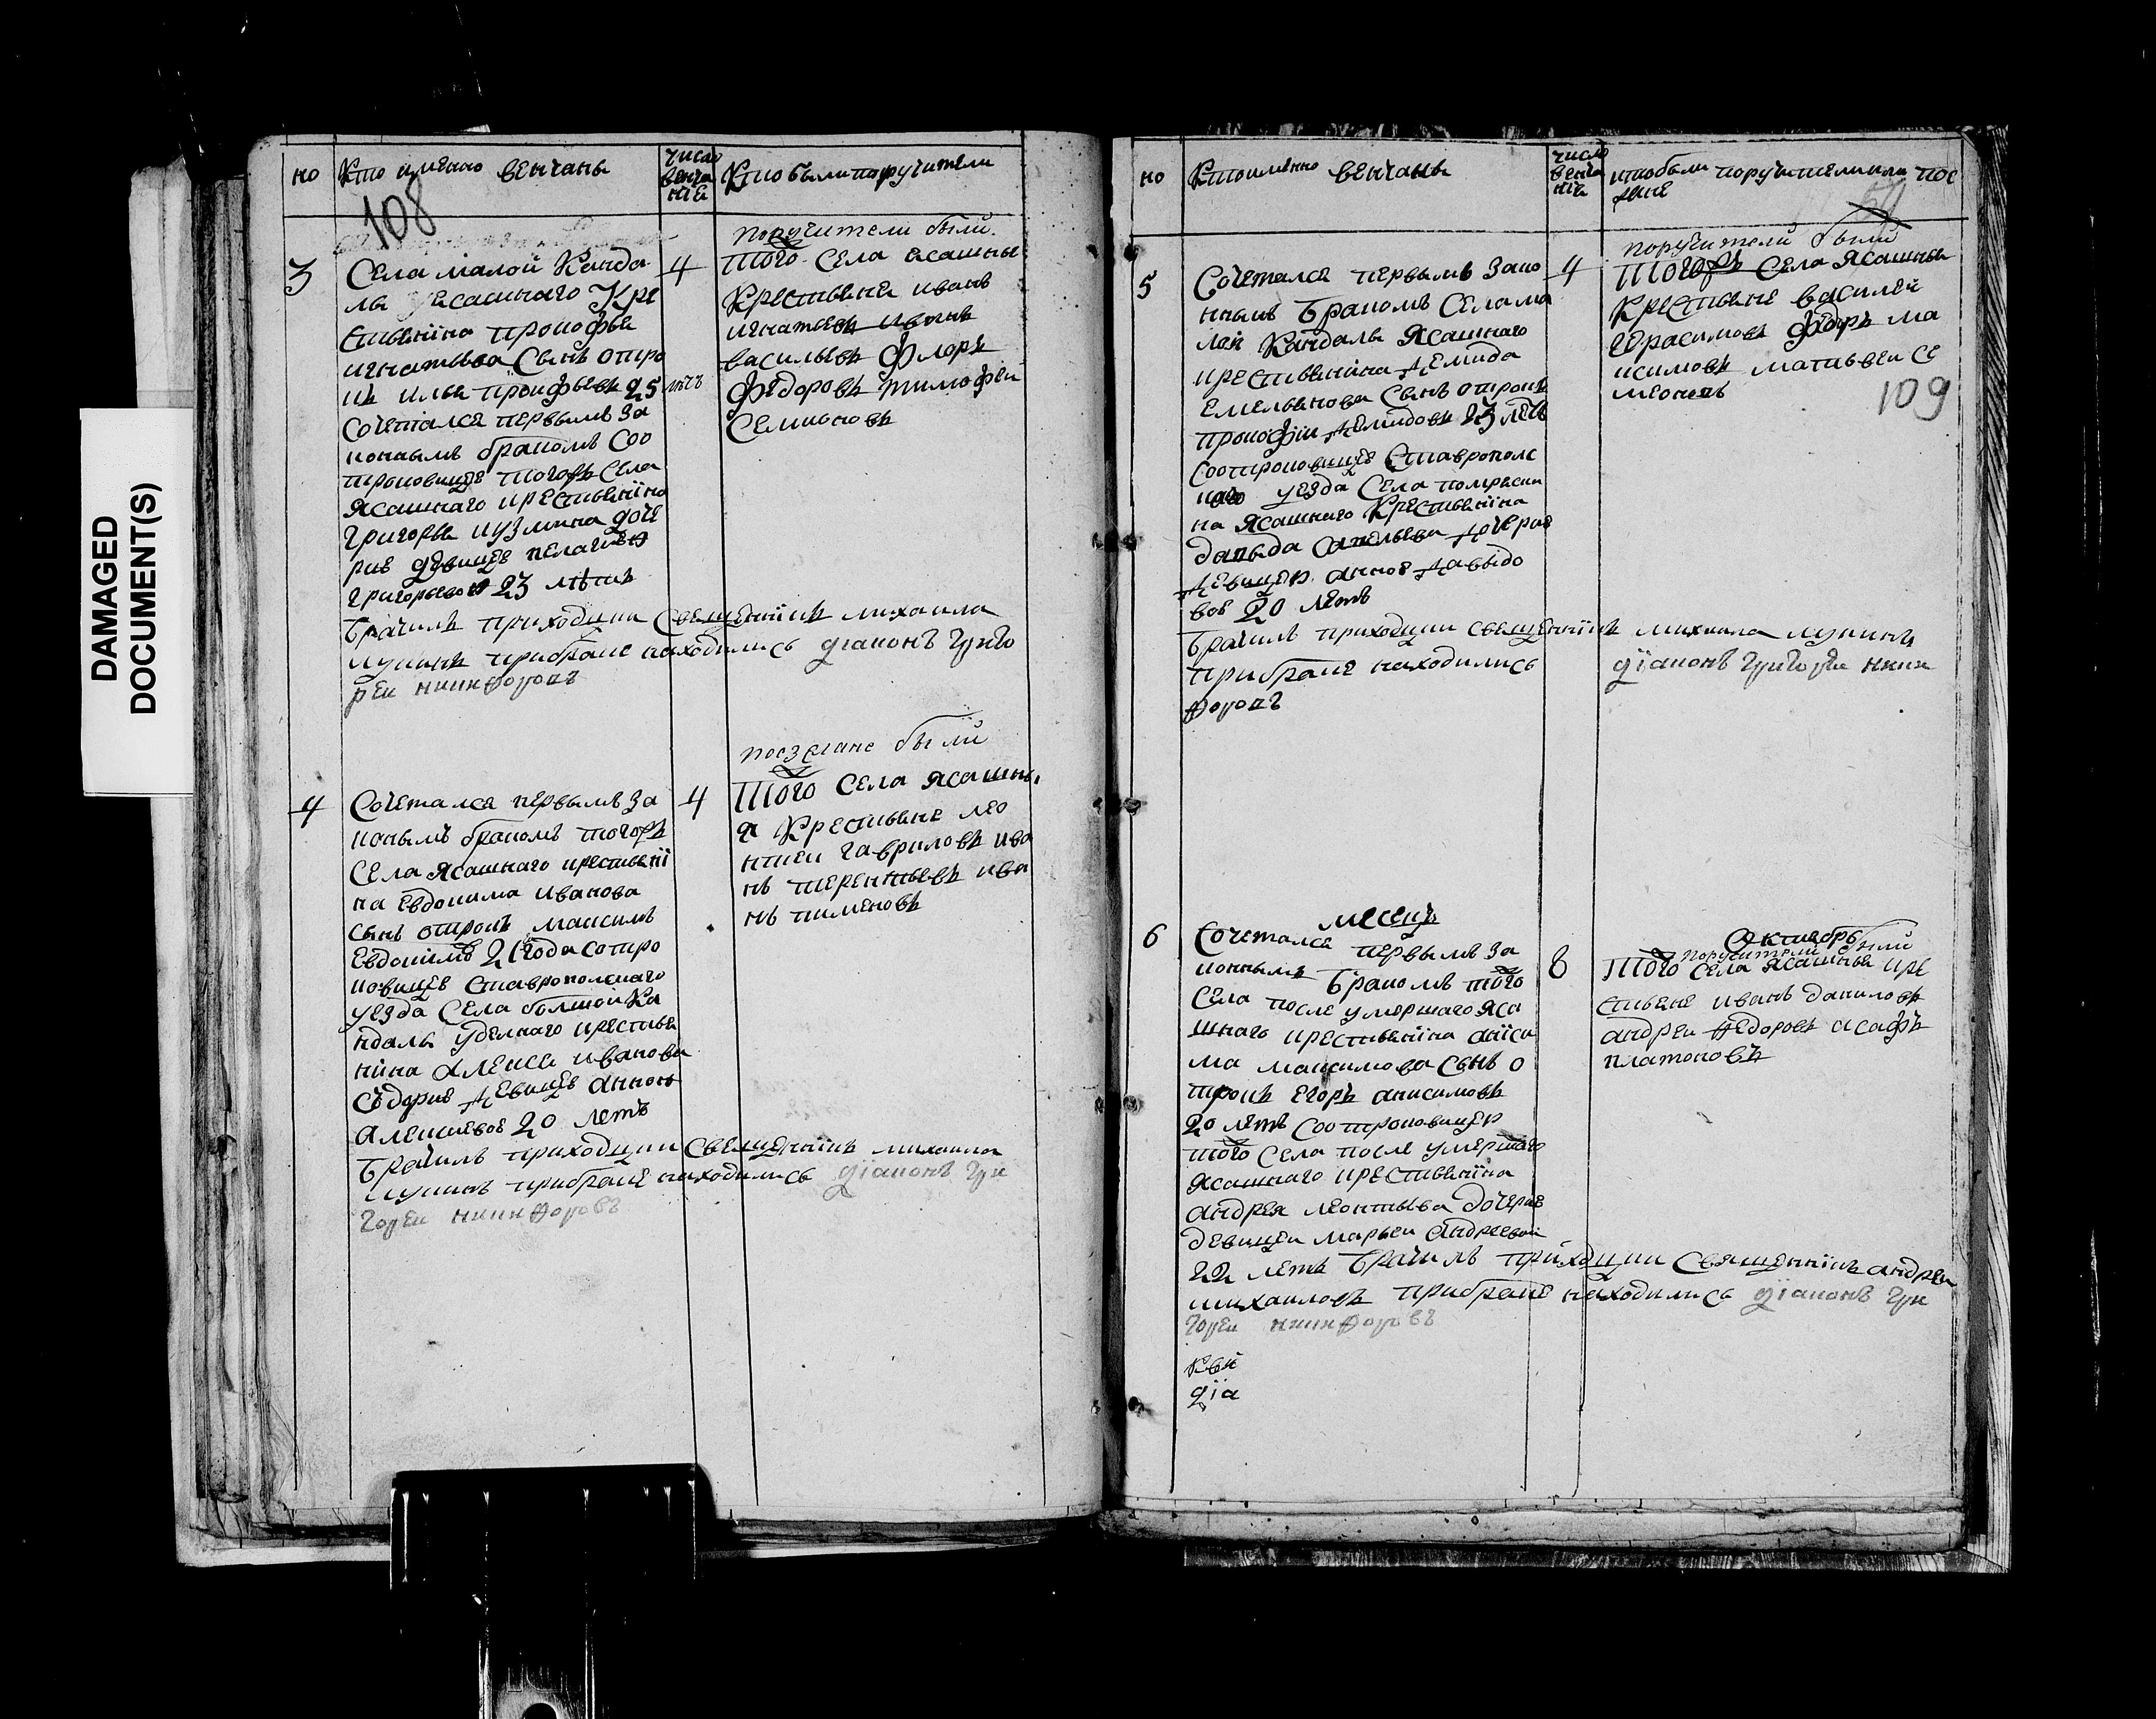 DAMAGED
DOCUMENT(S)
но
Кто имянно венчаны
число
венча
ние
Кто были поручители
108
3
Села малой Канда
лы ясашнаго Кре
стьянина Прокофья
Игнатьева сынъ отро
къ Илья Прокофьевъ 25 летъ
сочетался первымъ за
коннымъ бракомъ со о
троковицѣ тогожъ села
ясашнаго крестьянина
Григорья Кузмина доче
рью девицѣ Пелагѣя
Григорьевоя 23 летъ
4
поручители были
того села ясашны
Крестьяне Иванъ
Игнатьевъ Иванъ
Васильевъ Флоръ
Федоровъ Тимофеи
Семионовъ
Брачилъ приходции священникъ Михаила
Лукинъ при браке находились диаконъ Григо
реи Никифоровъ
4
Сочетался первымъ за
конымъ бракомъ тогожъ
села ясашнаго крестьяни
на Евдокима Иванова
сынъ отрокъ Максимъ
Евдокимъ 21 года сотро
ковицѣ Ставрополскаго
уезда села большой Ка
ндалы уделнаго крестья
нина Алекса Иванова
девицѣ Анною
Алексиевое 20 летъ
4
поезжане были
того села ясашны
я Крестьяне Лео
нтиеи Гавриловъ Ива
нъ Терентьевъ Ива
нъ Пименовъ
Брачилъ приходции священникъ Михаила
Лукинъ при браке находились диаконъ Гри
гореи Никифоровъ
но
Кто имянно венчаны
число
венча
ние
кто были поручители или пое
жане
109
5
Сочетался первымъ зако
ннымъ бракомъ села ма
лой Кандалы ясашнаго
крестьянина Демида
Емельянова сынъ отрокъ
Прокофии Демидовъ 23 летъ
со отроковицѣ Ставрополс
каго уезда села Помряски
на ясашнаго Крестьянина
Давыда Савельева дочерие
девицея Анное Давыдо
вое 20 летъ
4
поручители были
тогожъ села ясашныя
Крестьяне Василеи
Герасимовъ Федоръ Ма
ксимовъ Матьвеи Се
меоновъ
Брачилъ приходции свещенникъ Михаила Лукинъ
при браке находились диаконъ Григореи Ники
форовъ
месецъ
Октябрь
6
Сочетался первымъ за
коннымъ бракомъ того
села после умершаго яса
шнаго крестьянина Аниси
ма Максимова сынъ о
трокъ Егоръ Анисимовъ
20 летъ со отроковицея
того села после умершаго
ясашнаго крестьянина
Андрея Леонтьева дочерие
девицеи Марьеи Андреевой
8
поручители были
того села ясашныя кре
стьяне Иванъ Даниловъ
Андреи Федоровъ Асафъ
Платоновъ
22 летъ брачилъ приходции священникъ Андреи
Михаиловъ при браке находились диаконъ Гри
гореи Никифоровъ
диа